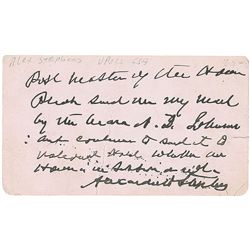 ALEX STEPHENS VPRES CSA
Post Master of the House
Please send me my mail
by the bearer A. D. Johnson
and continue to send it to
National Hotel whether the
House is in Session or not
Alexander H Stephens